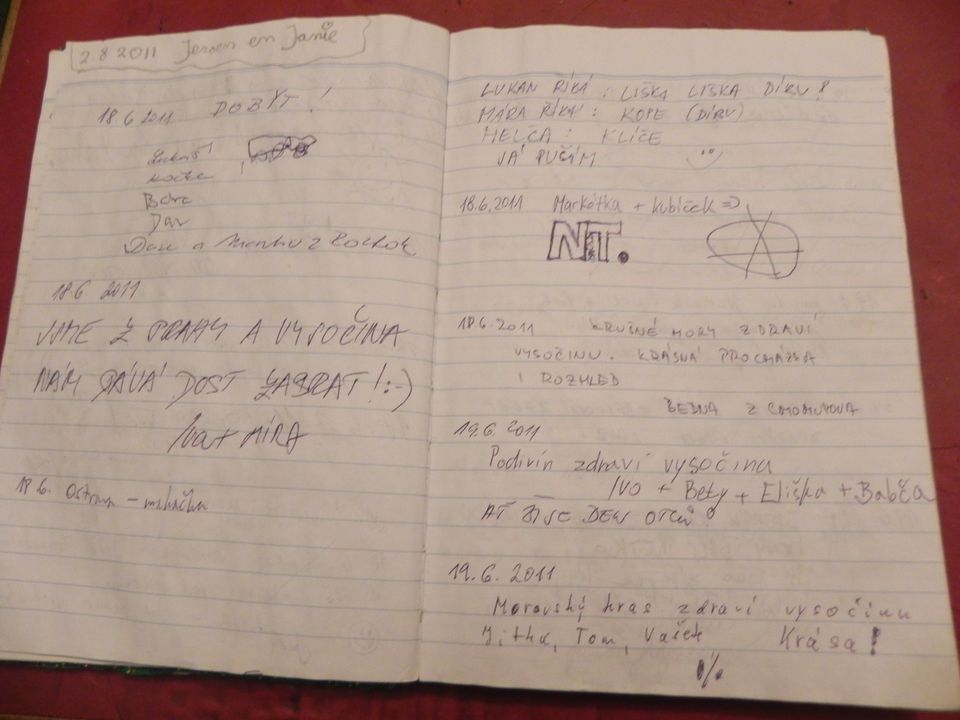 2.8 2011 Jeroen en Janie
18 6 2011 DOBÝT !
Bára
Dan
18 6 2011
JSME Z PRAHY A VYSOČINA
NÁM DÁVÁ DOST ZABRAT! :-)
Iva + MÍRA
18.6. Ostrava -
LUKAN ŘÍKÁ : LIŠKA LIŠKA DÍRU !
MÁRA ŘÍKÁ : KOPE (DÍRU)
HELČA : KLÍČE
JÁ
18.6.2011 Markétka + Kubíček =)
N.T.
18.6.2011 KRUŠNÉ HORY ZDRAVÍ
VYSOČINU. KRÁSNÁ PROCHÁZKA
I ROZHLED
BEDNA Z CHOMUTOVA
19.6. 2011
Podivín zdraví vysočinu
IVO + Bety + Eliška + Babča
AŤ ŽIJE DEN OTCŮ !
19.6. 2011
Moravský kras zdraví vysočinu
Jitka, Tom, Vašek Krása!